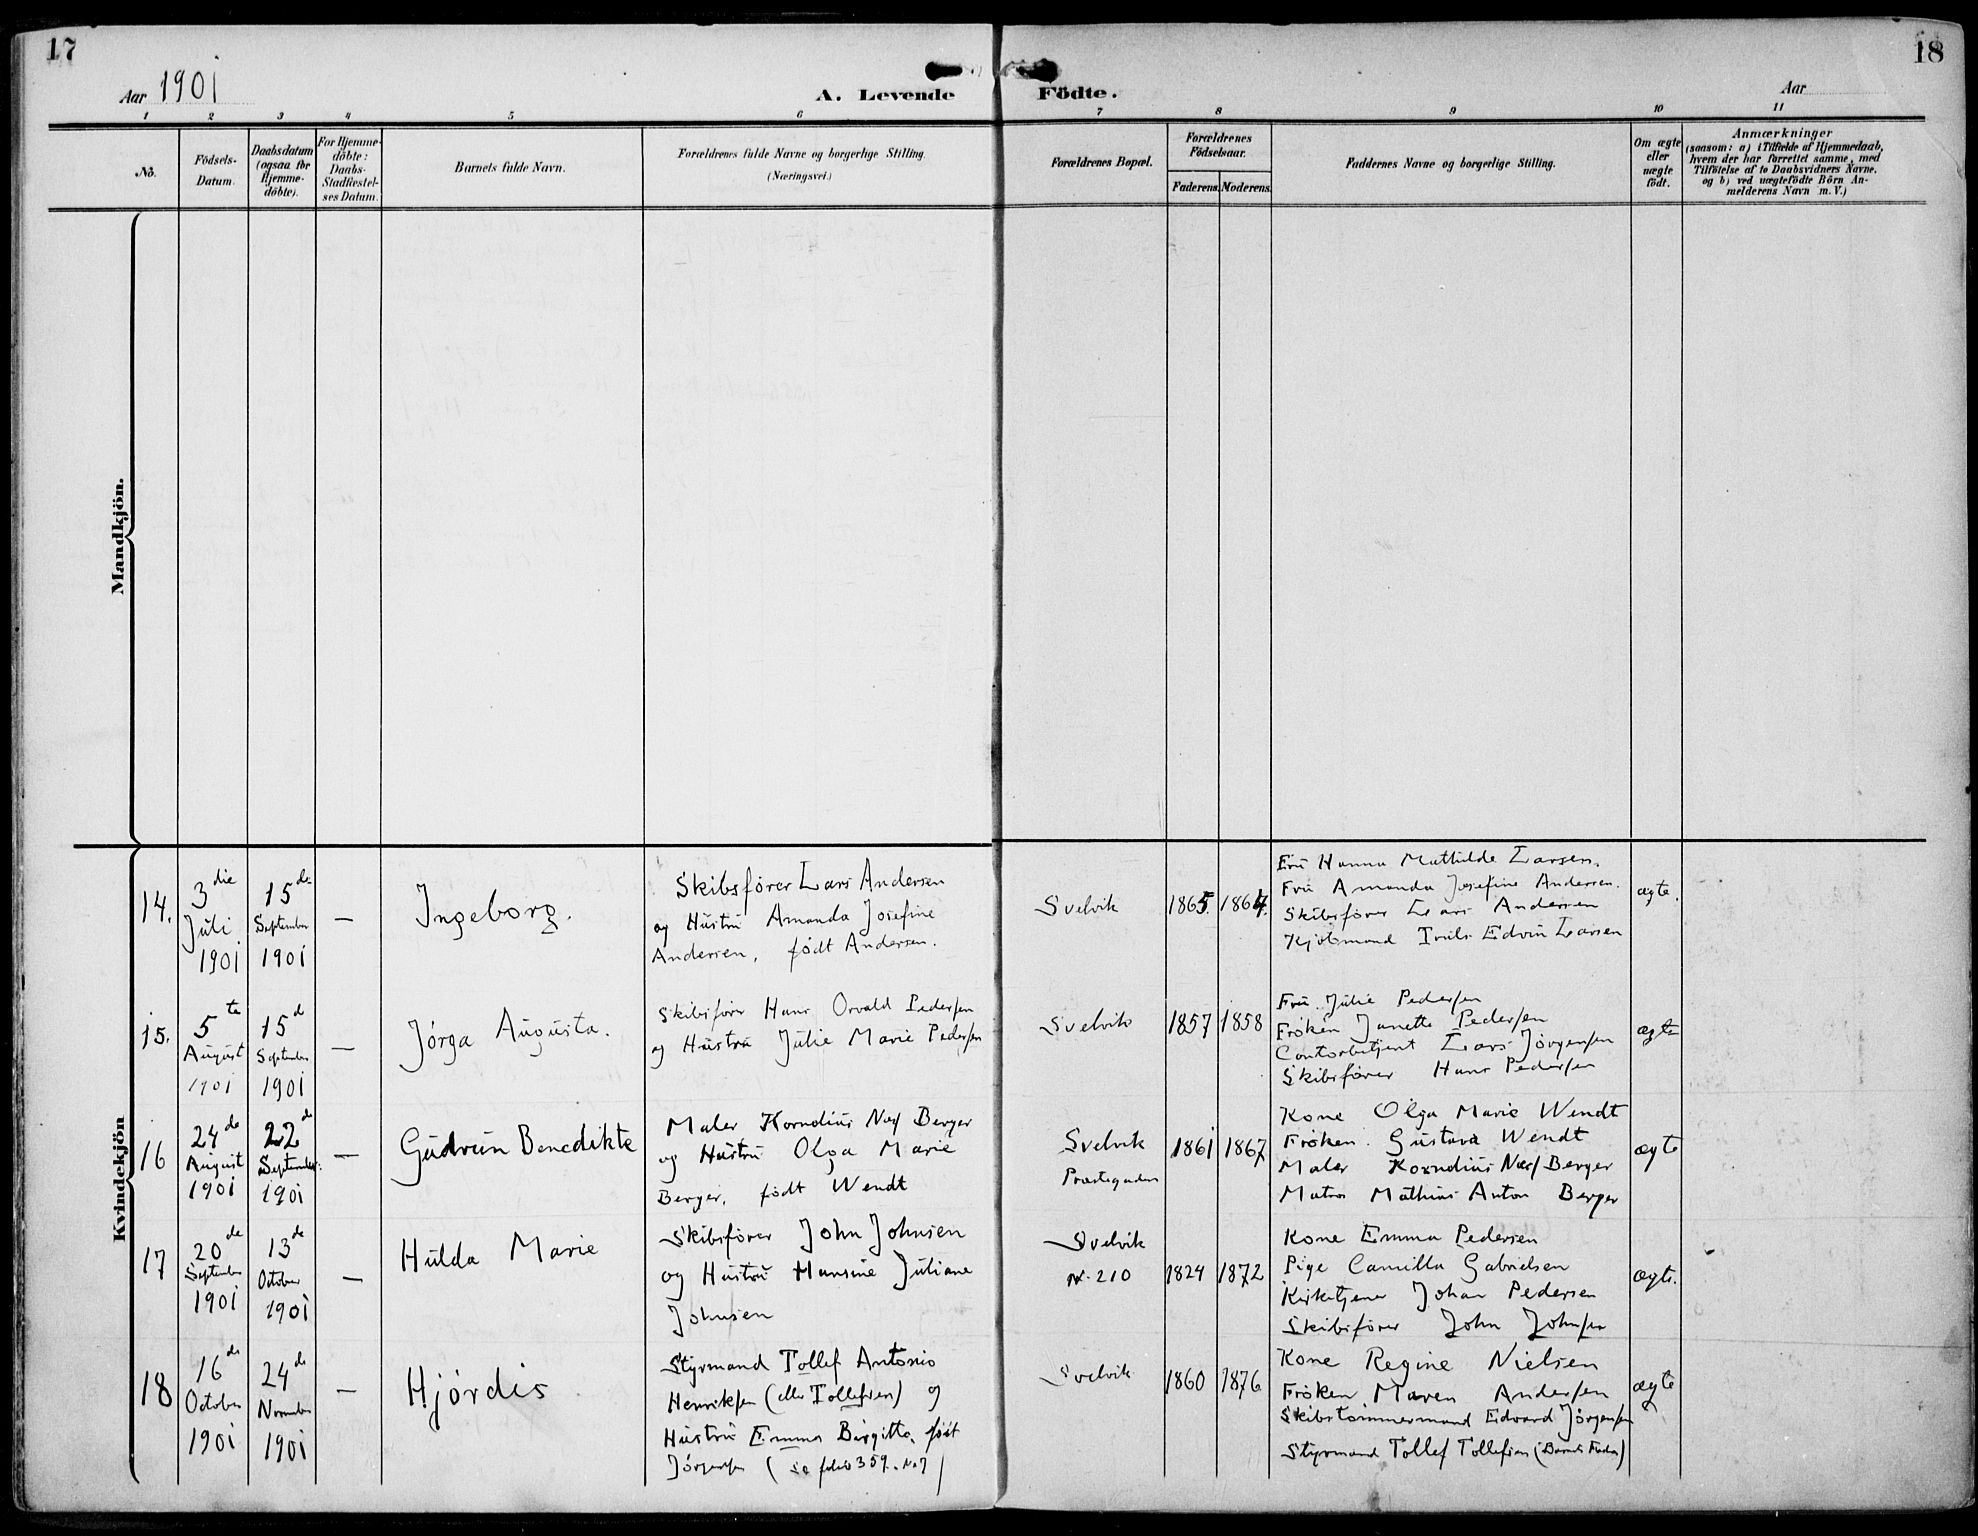 17
18
Aar 1901
A. Levende Födte.
Aar
1 2 3 4 5 6 7 8 9 10 11
No.
Födsels-
Datum.
Daabsdatum
(ogsaa for
Hjemme-
døbte).
For Hjemme-
døbte:
Daabs-
Stadfæstel-
ses Datum.
Barnets fulde Navn.
Forældrenes fulde Navne og borgerlige Stilling.
(Næringsvei.)
Forældrenes Bopæl.
Forældrenes
Födselsaar.
Faderens. Moderens.
Faddernes Navne og borgerlige Stilling.
Om ægte
eller
uægte
födt.
Anmærkninger
(saasom: a) i Tilfælde af Hjemmedaab,
hvem der har forrettet samme, med
Tilföielse af to Daabsvidners Navne,
og b) ved uægtefödte Börn An-
melderens Navn m. V.)
Mandkjön.
Kvindekjön
14.
3 die
Juli
1901
15 de
September
1901
—
Ingeborg.
Skibsfører Lars Andersen
og Hustru Amanda Josefine
Andersen, født Andersen.
Svelvik
1865. 1864.
Fru Hanna Mathilde Larsen.
Fru Amanda Josefine Andersen.
Skibsfører Lars Andersen
Kjøbmand Edvin Larsen
ægte.
15.
5 te
August
1901
15 d
September
1901
—
Jørga Augusta.
Skibsfører Hans Osvald Pedersen
og Hustru Julie Marie Pedersen
Svelvik
1857 1858
Fru Julie Pedersen
Frøken Janette Pedersen
Contorbetjent Lars Jørgensen
Skibsfører Hans Pedersen
ægte
16
24 de
August
1901
22 de
September
1901
—
Gudrun Benedikte
Maler Kornelius Berger
og Hustru Olga Marie
Berger, født Wendt
Svelvik
Præstegaden
1861 1867
Kone Olga Marie Wendt
Frøken Gustava Wendt
Maler Kornelius Berger
Matros Mathias Anton Berger
ægte
17
20 de
September
1901
13 de
October
1901
—
Hulda Marie
Skibsfører John Johnsen
og Hustru Hansine Juliane
Johnsen
Svelvik
N. 210
1824 1872
Kone Emma Pedersen
Pige Camilla Gabrielsen
Kirketjener Johan Pedersen
Skibsfører John Johnsen
ægte.
18
16 de
October
1901
24 de
November
1901
—
Hjørdis
Styrmand Tollef Antonio
Henriksen (eller Tollefsen) og
Hustru Emma Birgitte, født
Jørgensen (se folio 359. No. 7)
Svelvik
1860 1876
Kone Regine Nielsen
Frøken Maren Andersen
Skibstømmermand Edvard Jørgensen
Styrmand Tollef Tollefsen (Barnets Fader)
ægte